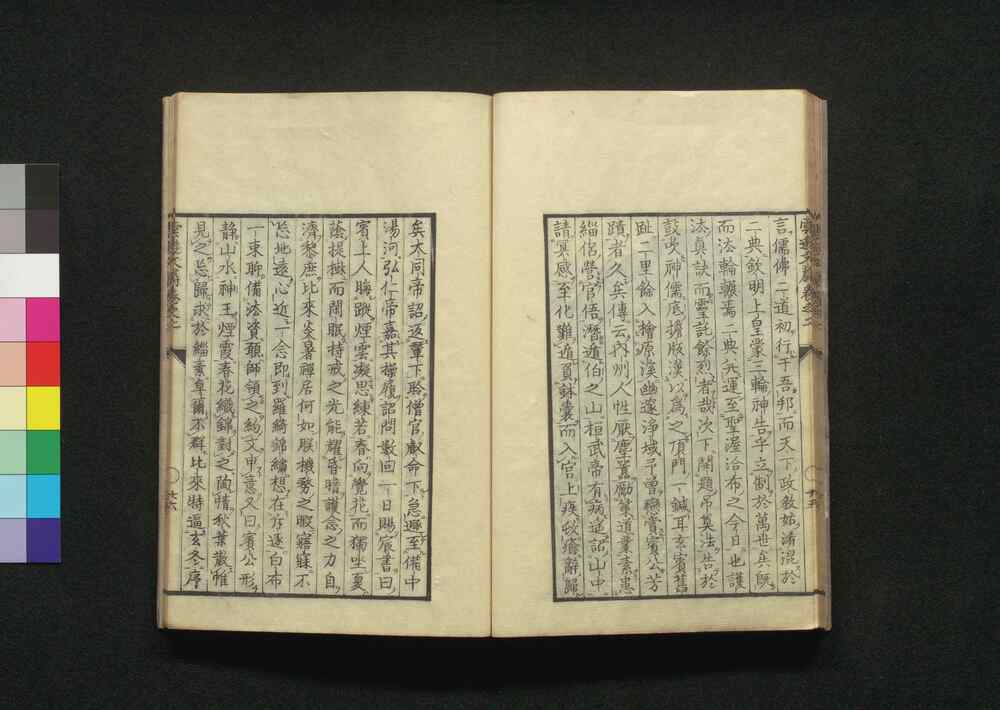 言儒佛二道初行于吾邦而天下政敎始淆混於
二典欽明上皇蒙三輪神告乎立制於萬世矣既
而法輪輾焉二典光運至聖澤洽布之今日也護
法眞訣而靈託餘烈者哉次下開題弔奠法告於
玆此神儒底擔版漢以爲之頂門一鍼耳玄賓舊
趾二里餘入檜原溪幽邃淨域予曾戀賞賓公芳
蹟者久矣傳云内州人性厭塵囂勵策道業素患
緇侶營官倍潛遁伯之山桓武帝有病遙詔山中
請冥感至化難遁負鉢囊而入宮上疾欻瘡辭歸
矣大同帝詔返輦下聆僧官獻命下急遯至備中
湯河弘仁帝嘉其操履詔問數回一日賜宸書曰
賓上人晦蹤煙雲凝思練若春向覺花而獨坐夏
蔭提樹而閑眠持戒之光能耀昏暗護念之力自
濟黎庶比來炎暑禪居何如朕機務之暇寤寐不
忘地遠心近一念即到羅綺錦繡想在斥逐白布
一束聊備法資願師領之絢文申意又曰賓公形
靜山水神王煙霞春花織錦對之陶情秋葉散帷
見之忘歸求於緇素卓爾不群比來特逼玄冬序
廿五
廿六